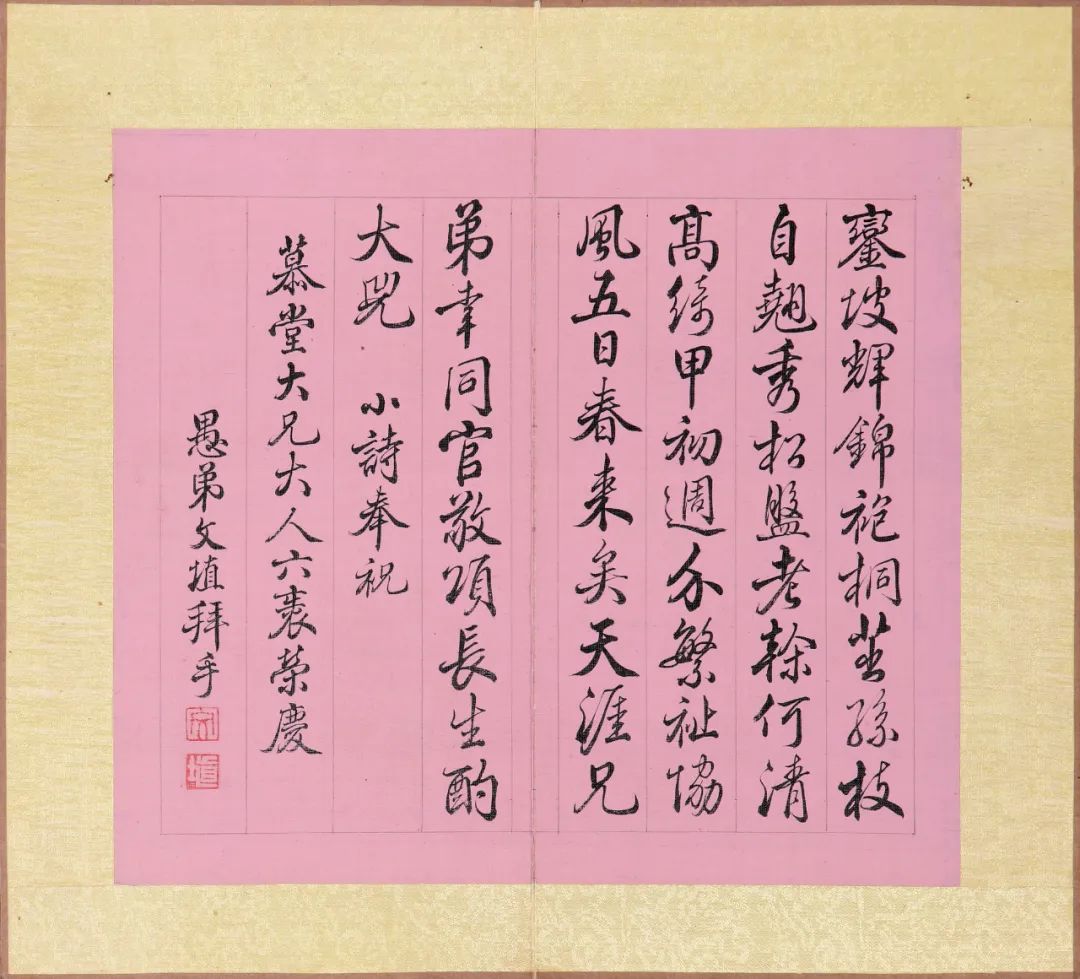 鑾坡輝錦袍桐茁孫枝
自翹秀松盤老榦何清
高綺甲初週介繁祉協
風五日春来矣天涯兄
弟幸同官敬頌長生酌
大兕　小詩奉祝
慕堂大兄大人六袠榮慶
愚弟文埴拜手
文
埴